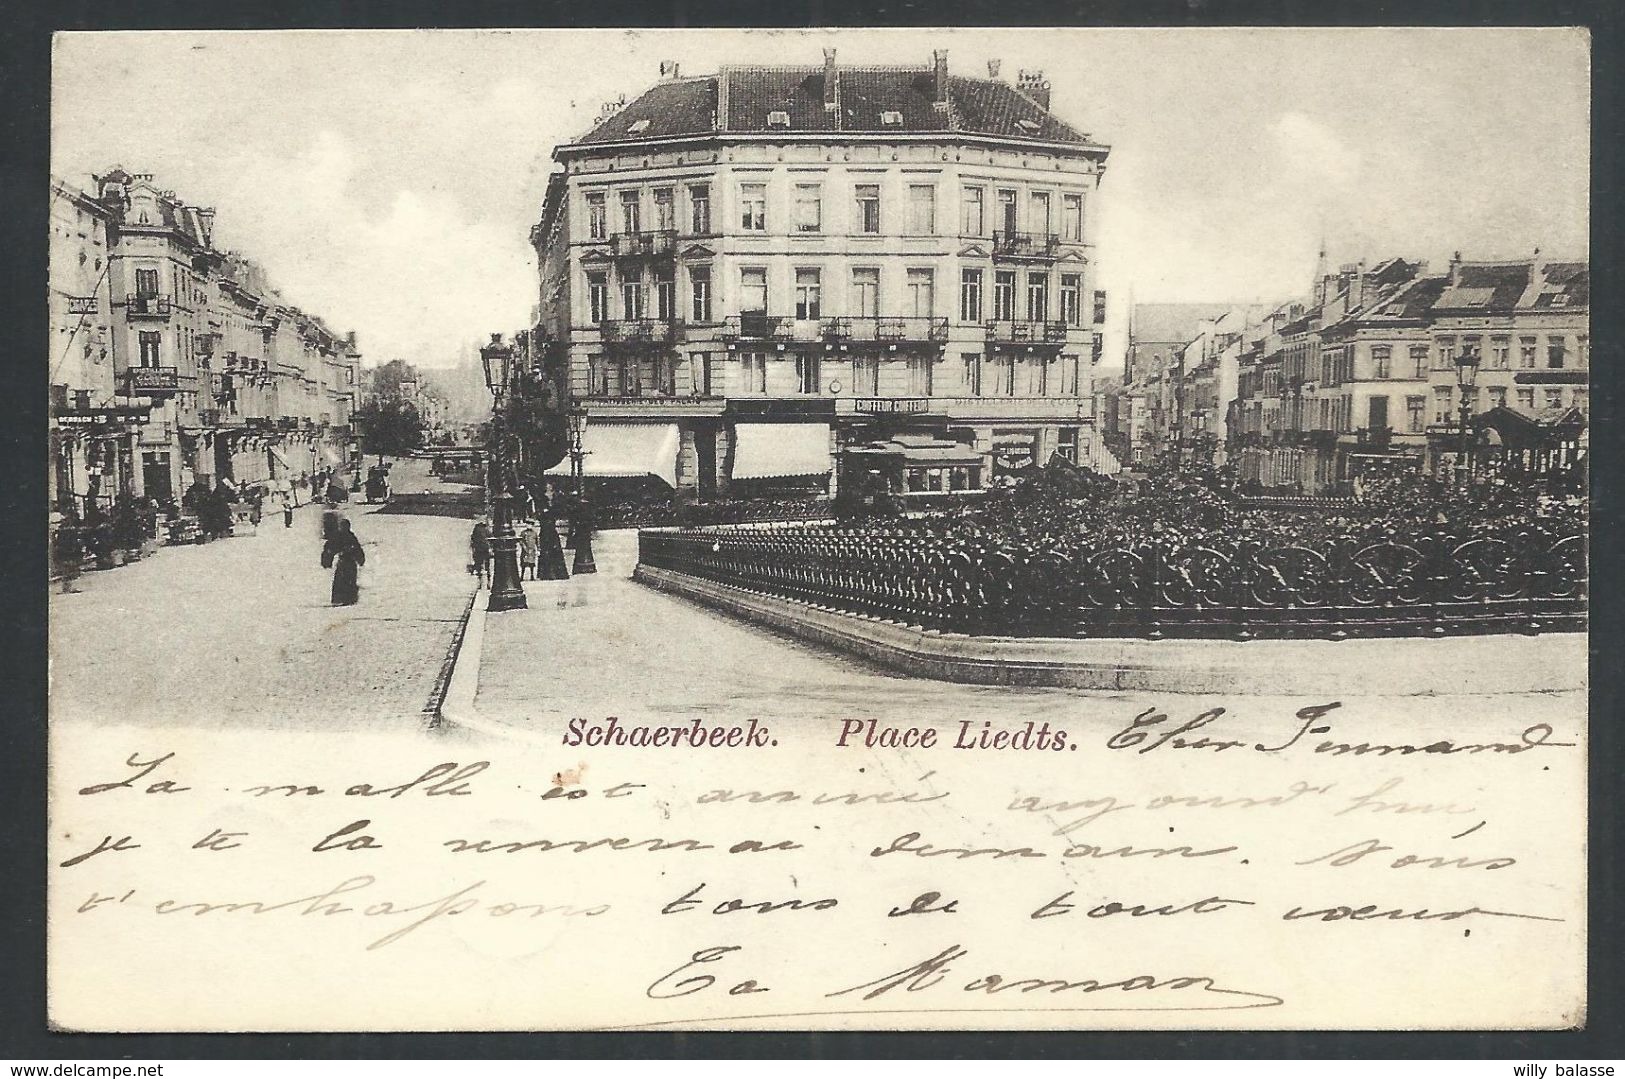 COIFFEUR COIFFEUR
Schaerbeek. Place Liedts. Cher Fernand.
La malle est arrivée aujourd'hui,
je te la renverrai demain. Nous
t'embrassons tous de tout cœur.
Ta Maman
willy balasse